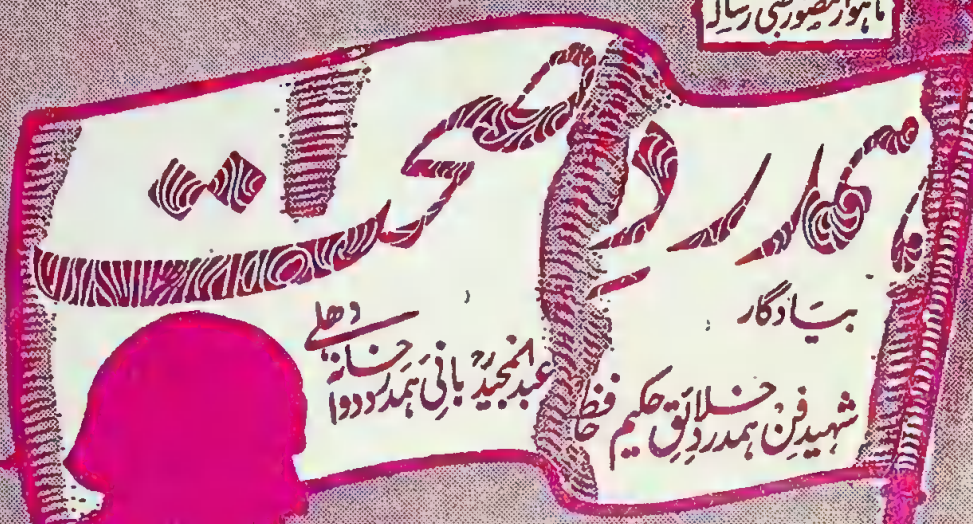 ماہوار مصور طبی رسالہ
ہمدرد صحت
بیادگار
شہید فن ہمدرد خلائق حکیم حافظ
عبدالمجید بانی ہمدرد دواخانہ دهلی